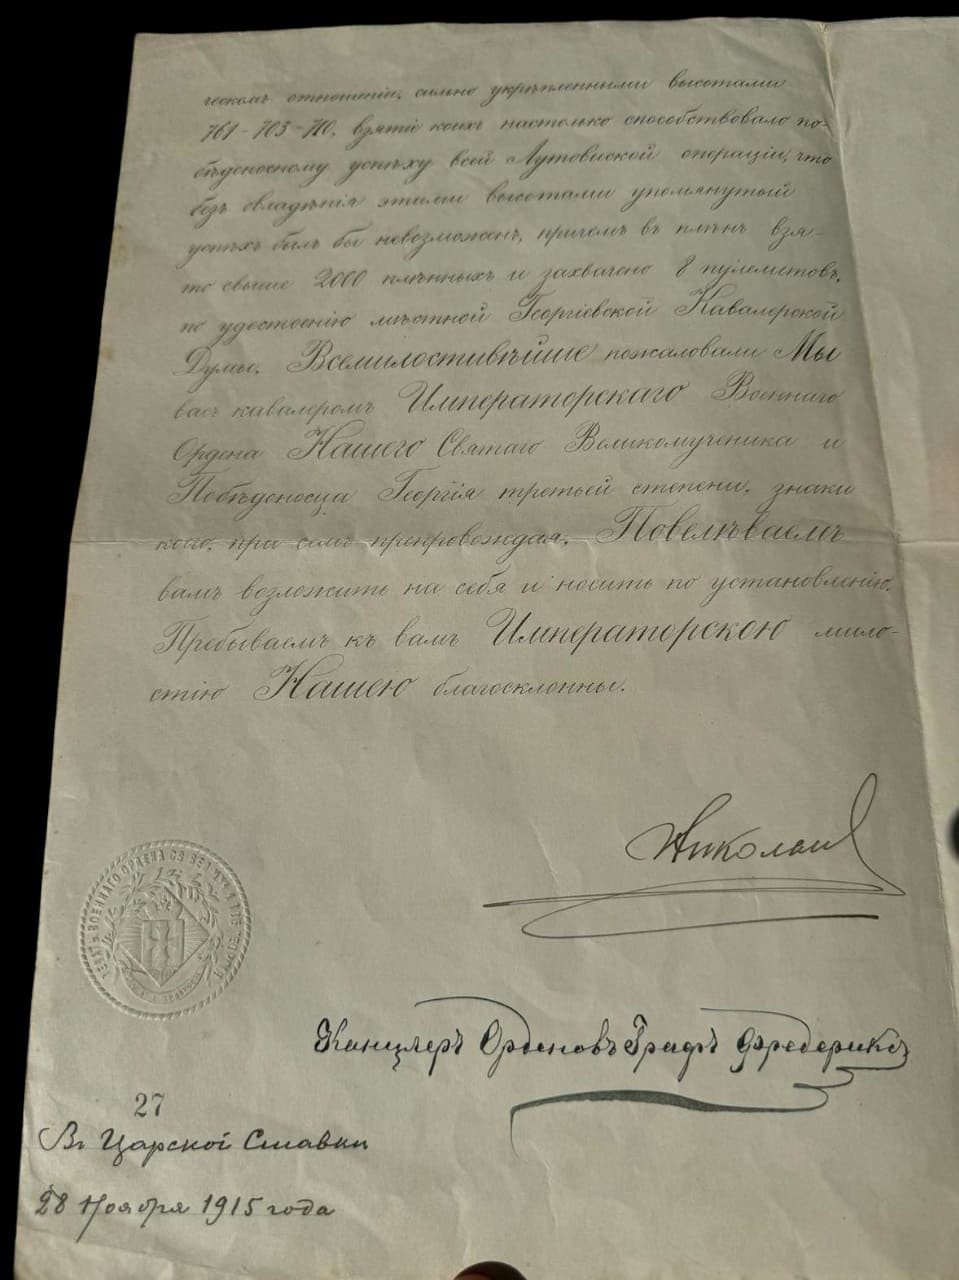 ческомъ отношеніи, сильно укрѣпленными высотами
761-703-710, взятіе коихъ настолько способствовало по-
бѣдоносному успѣху всей Лутовиской операціи, что
безъ овладѣнія этими высотами упомянутый
успѣхъ былъ бы невозможенъ, причемъ въ плѣнъ взя-
то свыше 2000 плѣнныхъ и захвачено 8 пулеметовъ,
по удостоенію мѣстной Георгіевской Кавалерской
Думы, Всемилостивѣйше пожаловали Мы
васъ кавалеромъ Императорскаго Военнаго
Ордена Нашего Святаго Великомученика и
Побѣдоносца Георгія третьей степени, знаки
коего, при семъ препровождая, Повелѣваемъ
вамъ возложить на себя и носить по установленію.
Пребываемъ къ вамъ Императорскою мило-
стію Нашею благосклонны.
Николай
ВОЕННАГО ОРДЕНА СВ ВЕЛ
Канцлеръ Орденовъ Графъ Фредериксъ
27
Въ Царской Ставкѣ
28 Ноября 1915 года